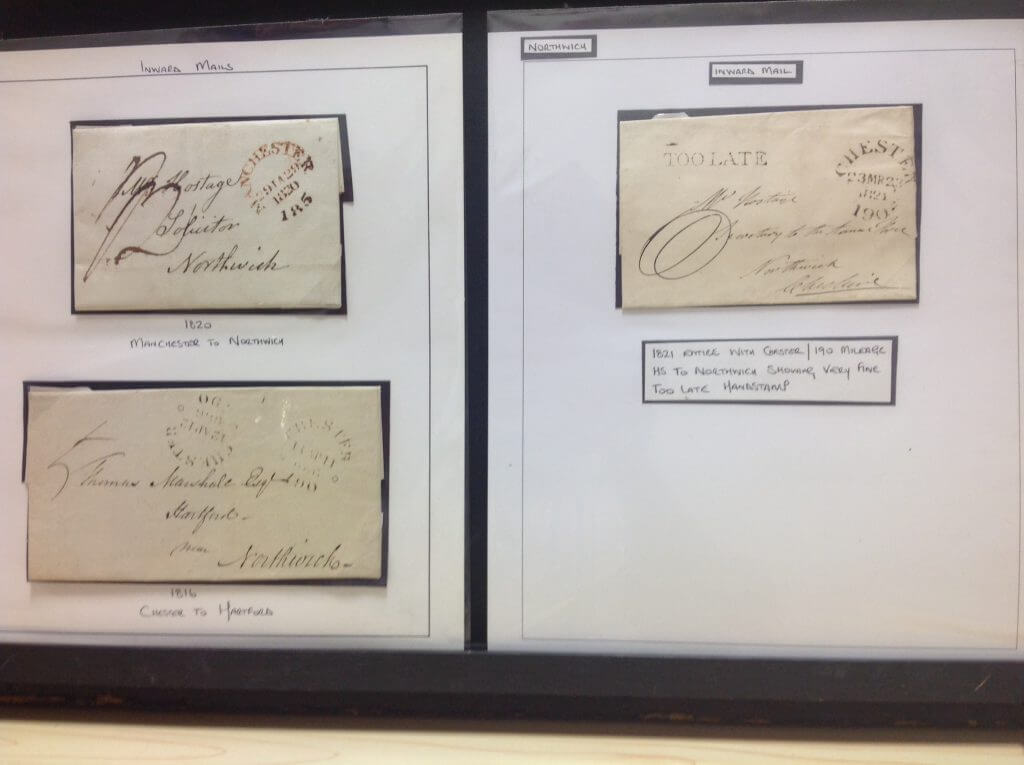 INWARD MAILS
MANCHESTER
29JA29
1820
185
Postage
Solicitor
Northwich
1820
MANCHESTER TO NORTHWICH
CHESTER
CHESTER
190
Thomas Marshall Esqr
Hartford
near
Northwich
1816
CHESTER TO HARTFORD
NORTHWICH
INWARD MAIL
TOO LATE
CHESTER
23MR23
1821
190
Mr
to the
Northwich
Cheshire
1821 ENTIRE WITH CHESTER/190 MILEAGE
HS TO NORTHWICH SHOWING VERY FINE
TOO LATE HANDSTAMP